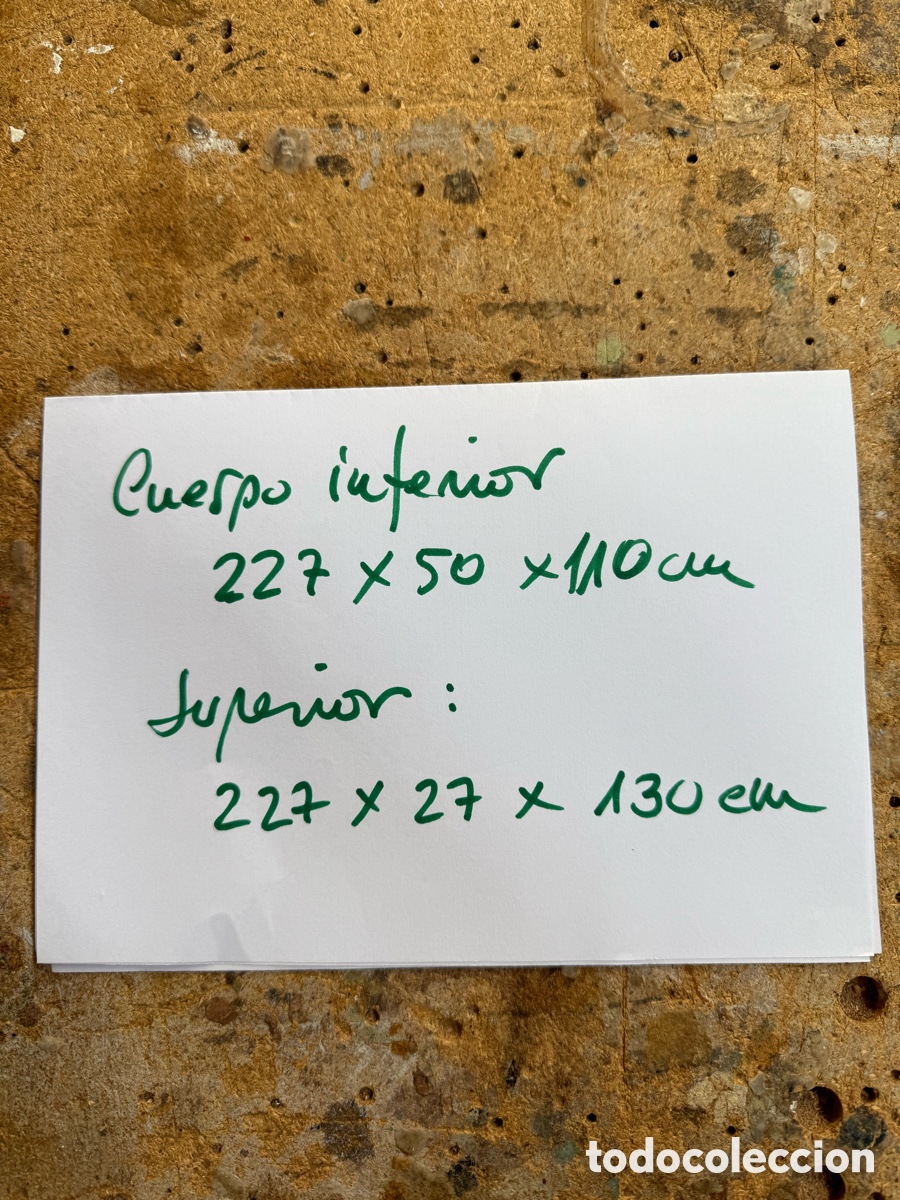 Cuerpo inferior
227 x 50 x 110 cm
Superior :
227 x 27 x 130 cm
todocoleccion